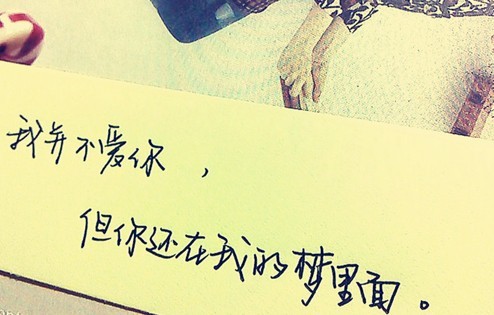 我并不爱你，
但你还在我的梦里面。